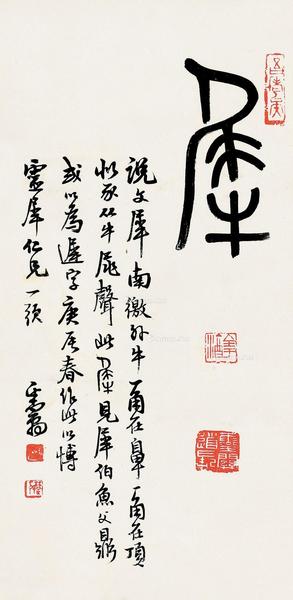 犀
说文犀南徼外牛一角在鼻一角在頂
似豕从牛尾聲此犀見犀伯魚父鼎
或以為遲字庚辰春作此以博
靈犀仁兄一頌